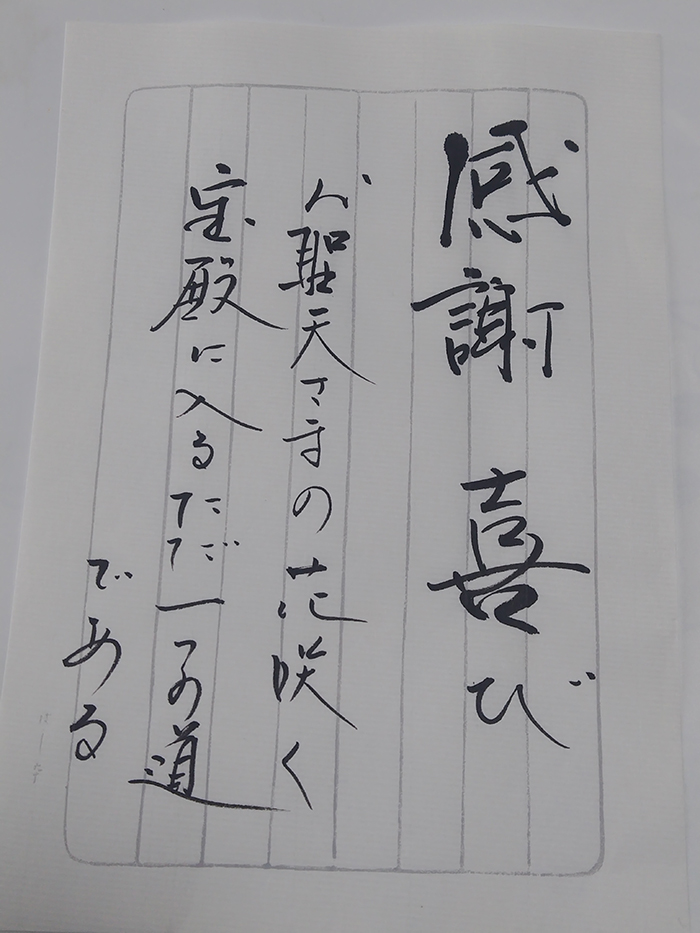 感謝 喜び
が聖天の花咲く
宝殿に入るただ一つの道
である